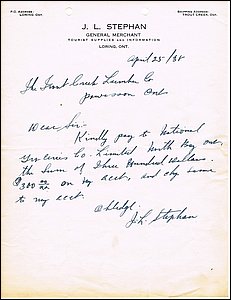 P.O. ADDRESS:
LORING, ONT.
SHIPPING ADDRESS:
TROUT CREEK, ONT.
J. L. STEPHAN
GENERAL MERCHANT
TOURIST SUPPLIES AND INFORMATION
LORING, ONT.
April 25/38
The Trout Creek Lumber Co
Powassan Ont
Dear Sir.
Kindly pay to National
Groceries Co. Limited North Bay Ont,
the sum of Three Hundred Dollars.
$300 00/xx on my acct, and chg same
to my acct.
Oblidge.
J.L. Stephan